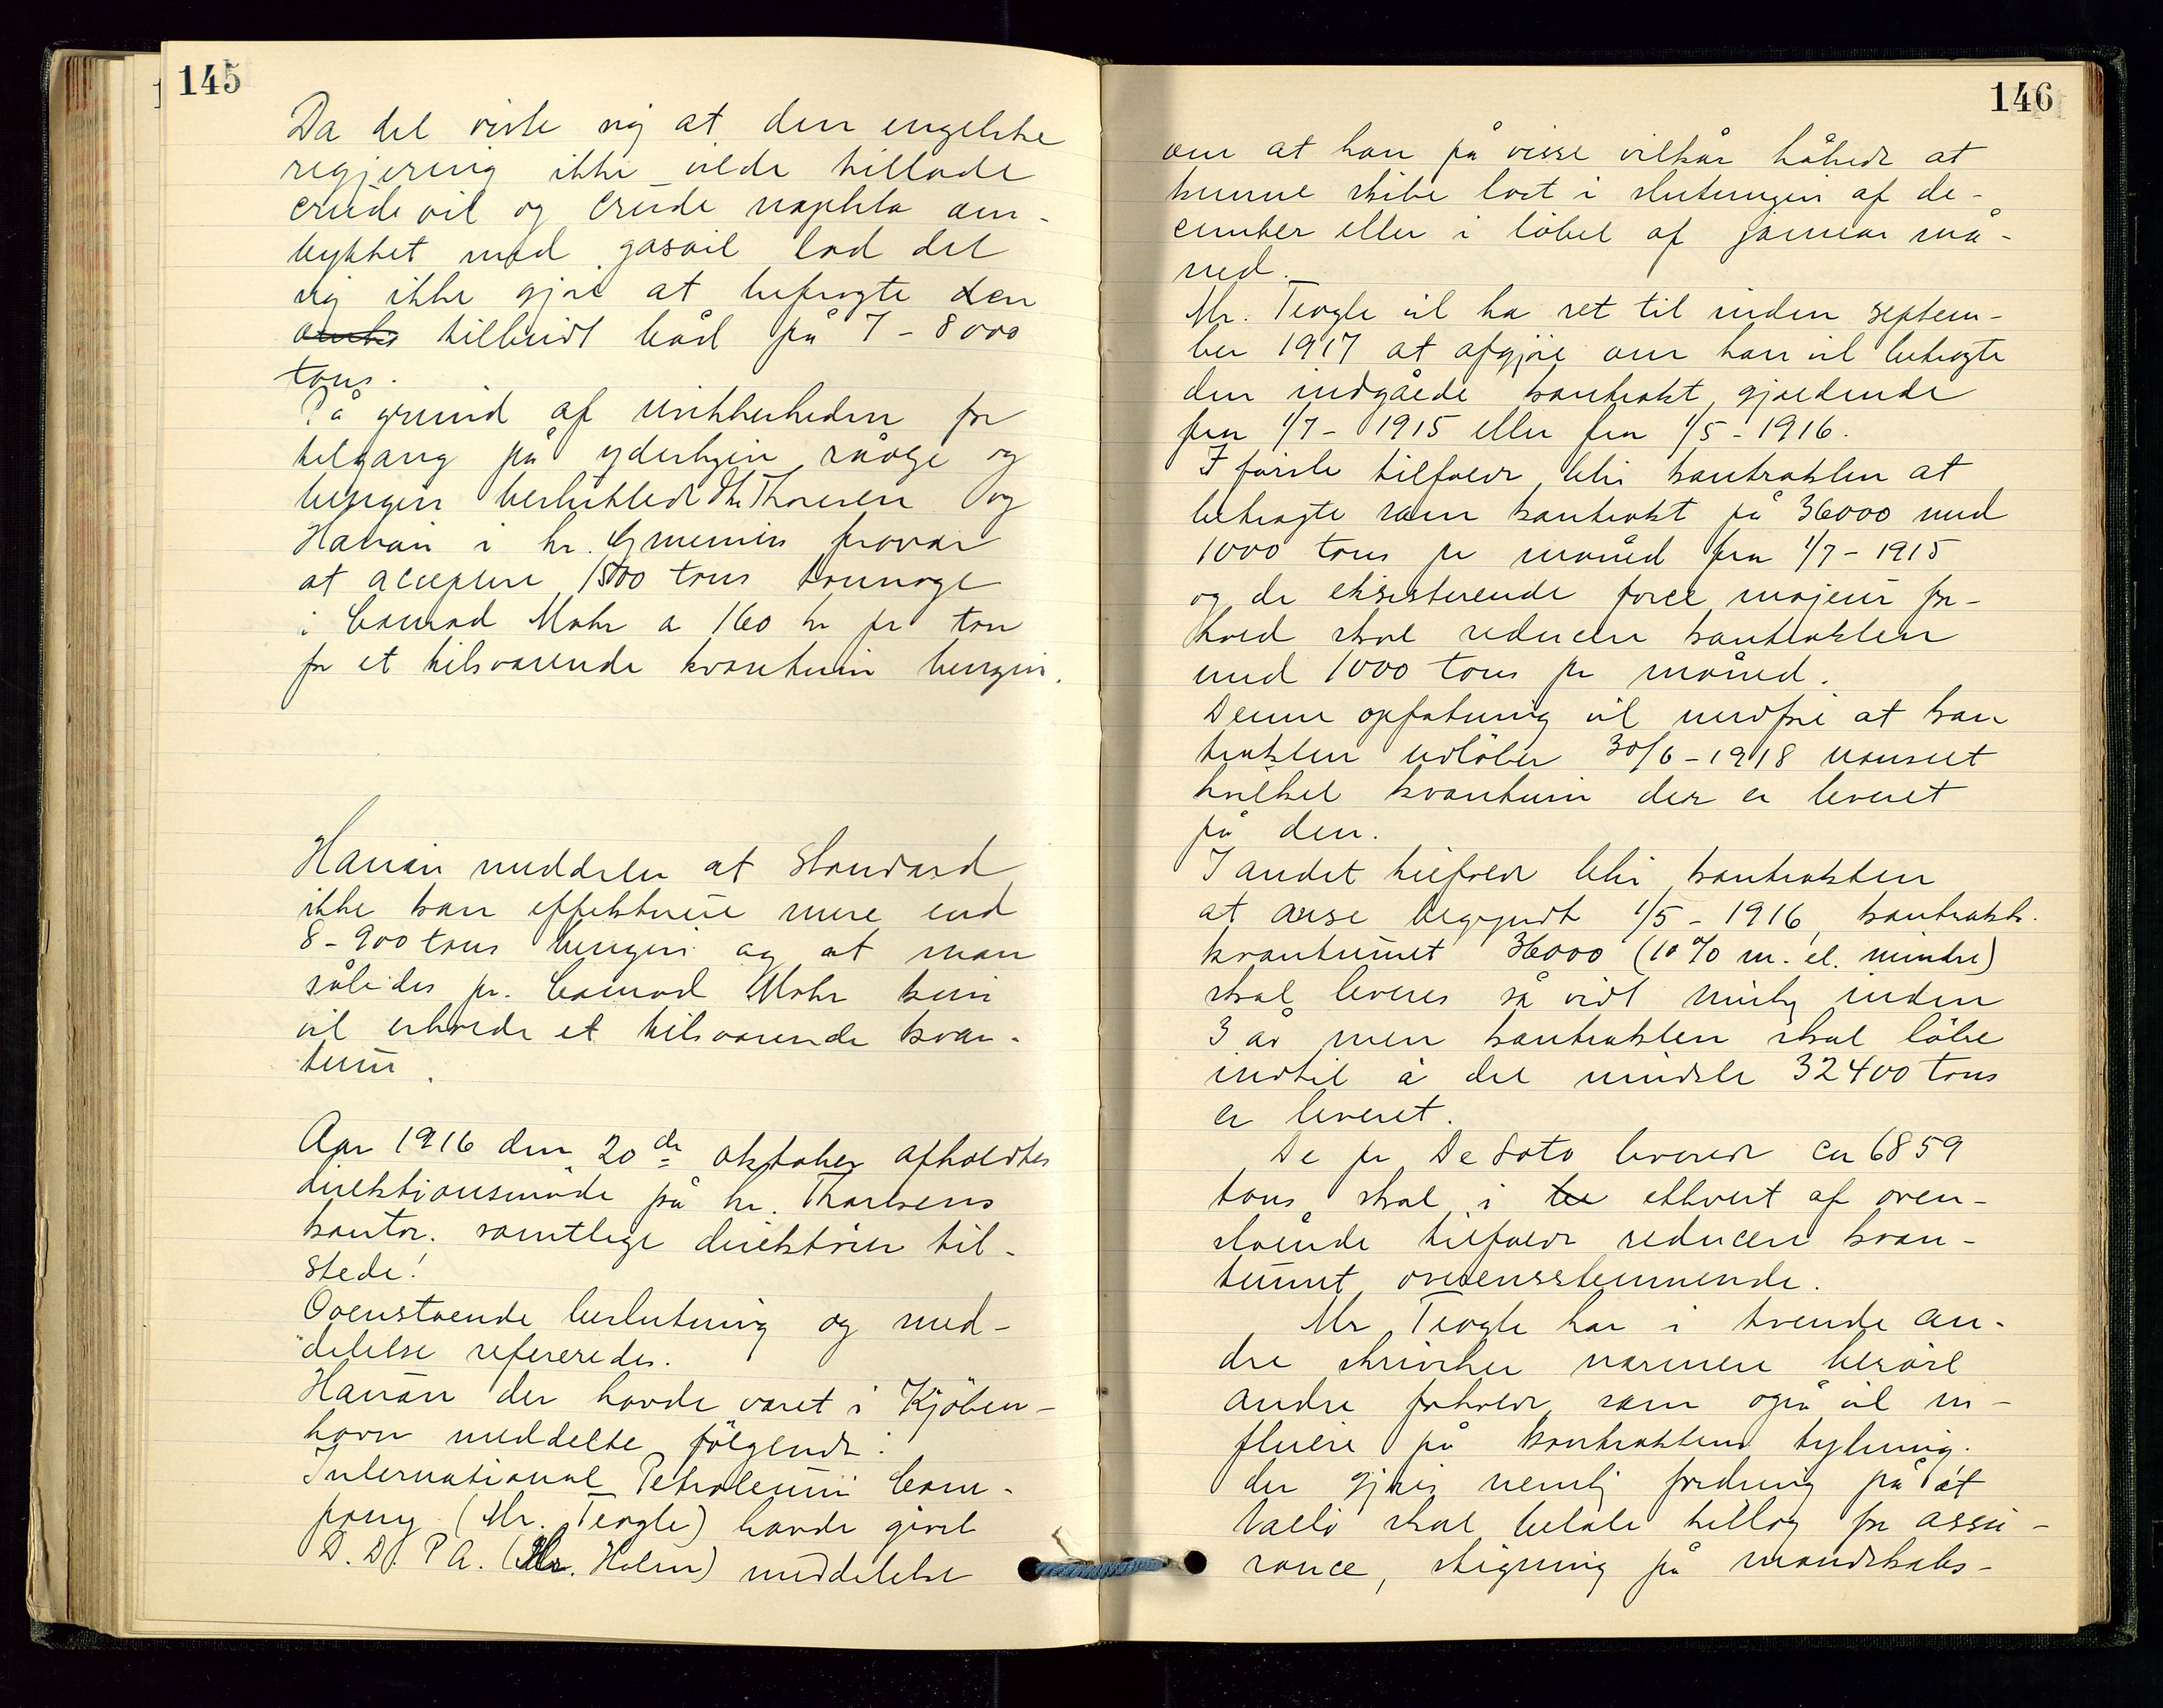 145
Da det viste sig at den engelske
regjering ikke vilde tillade
crude oil og crude naphta om-
byttet med gasoil lod det
sig ikke gjøre at befragte den
tilbudt båd på 7 - 8000
tons.
På grund af usikkerheden for
tilgang på yderligere råolje og
benzin besluttede Hr Thoresen og
Hanán i hr. fravær
at acceptere 1500 tons tonnage
i Conrad Mohr a 160 kr pr ton
for et tilsvarende kvantum benzin.
Hanán meddeler at Standard
ikke kan effektuere mere end
8-900 tons benzin og at man
således pr. Conrad Mohr kun
vil erholde et tilsvarende kvan-
tum.
Aar 1916 den 20de oktober afholdtes
direktionsmøde på hr. Thoresens
kontor. samtlige direktører til-
stede!
Ovenstående beslutning og med-
delelse refereredes.
Hanán der havde været i Kjöben-
havn meddelte fölgende:
International Petroleum Com-
pany (Mr. Teagle) havde givet
D. D. P A. (Hr. Holm) meddelelse
146
om at han på visse vilkår håbede at
kunne skibe last i slutningen af de-
cember eller i löbet af januar må-
ned.
Mr. Teagle vil ha ret til inden septem-
ber 1917 at afgjøre om han vil betragte
den indgåede kontrakt gjældende
fra 1/7 - 1915 eller fra 1/5 - 1916.
I første tilfælde blir kontrakten at
betragte som kontrakt på 36000 med
1000 tons pr måned fra 1/7 - 1915
og de eksisterende force majeur for-
hold skal reducere kontrakten
med 1000 tons pr måned.
Denne opfatning vil medføre at kon
trakten udlöber 30/6 - 1918 uanseet
hvilket kvantum der er leveret
på den.
I andet tilfælde blir kontrakten
at anse begyndt 1/5 - 1916, kontrakts-
kvantumet 36000 (10% m. el. mindre)
skal leveres så vidt mulig inden
3 år men kontrakten skal löbe
indtil å det mindste 32400 tons
er leveret.
De pr De Soto leverede ca 6859
tons skal i ethvert af oven-
stående tilfælde reducere kvan-
tumet overensstemmende.
Mr Teagle har i tvende an-
dre skrivelser nærmere berørt
andre forhold, som også vil in-
fluere på kontraktens tydning.
der gjøres nemlig fordring på at
Vallö skal betale tillæg for assu-
rance, stigning på mandskabs-